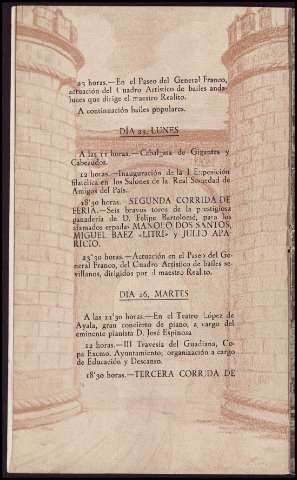 23 horas.—En el Paseo del General Franco,
actuación del Cuadro Artístico de bailes anda-
luces que dirige el maestro Realito.
A continuación bailes populares.
DÍA 25, LUNES
A las 11 horas.—Cabalgata de Gigantes y
Cabezudos.
12 horas.—Inauguración de la I Exposición
filatélica en los Salones de la Real Sociedad de
Amigos del País.
18'30 horas. SEGUNDA CORRIDA DE
FERIA.—Seis bravos toros de la prestigiosa
ganadería de D. Felipe Bartolomé, para los
afamados espadas MANOLO DOS SANTOS,
MIGUEL BAEZ «LITRI» y JULIO APA-
RICIO.
23'30 horas.—Actuación en el Paseo del Ge-
neral Franco, del Cuadro Artístico de bailes se-
villanos, dirigidos por el maestro Realito.
DIA 26, MARTES
A las 11'30 horas.—En el Teatro López de
Ayala, gran concierto de piano, a cargo del
eminente pianista D. José Espinosa
12 horas.—III Travesía del Guadiana, Co-
pa Excmo. Ayuntamiento; organización a cargo
de Educación y Descanso.
18'30 horas.—TERCERA CORRIDA DE